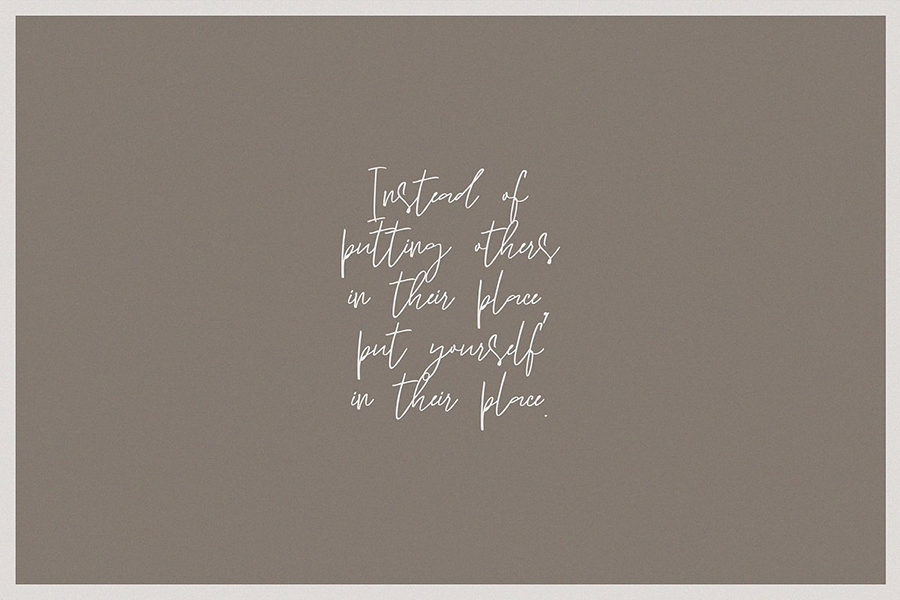 Instead of
putting others
in their place,
put yourself
in their place.